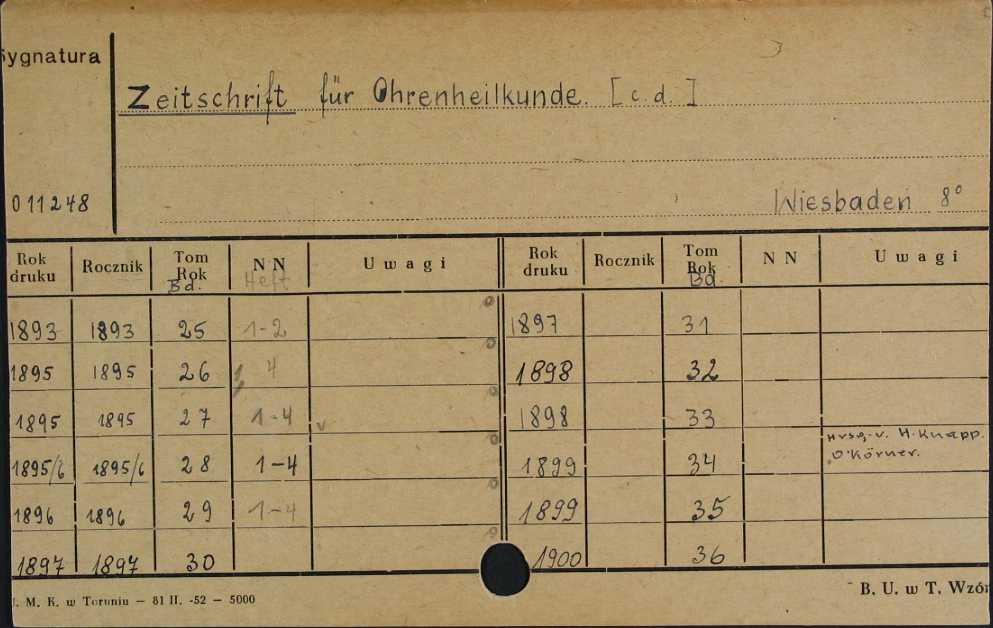 Sygnatura
Zeitschrift für Ohrenheilkunde. [c.d.]
011248
Wiesbaden 8°
Rok druku Rocznik Tom Rok Bd. NN Heft Uwagi Rok druku Rocznik Tom Rok Bd. NN Uwagi
1893 1893 25 1-2 1897 31
1895 1895 26 4 1898 32
1895 1895 27 1-4 1898 33
1895/6 1895/6 28 1-4 1899 34 Hrsg. v. H. Knapp. O. Körner.
1896 1896 29 1-4 1899 35
1897 1897 30 1900 36
U. M. K. w Toruniu — 81 II. -52 — 5000
B. U. w T. Wzór